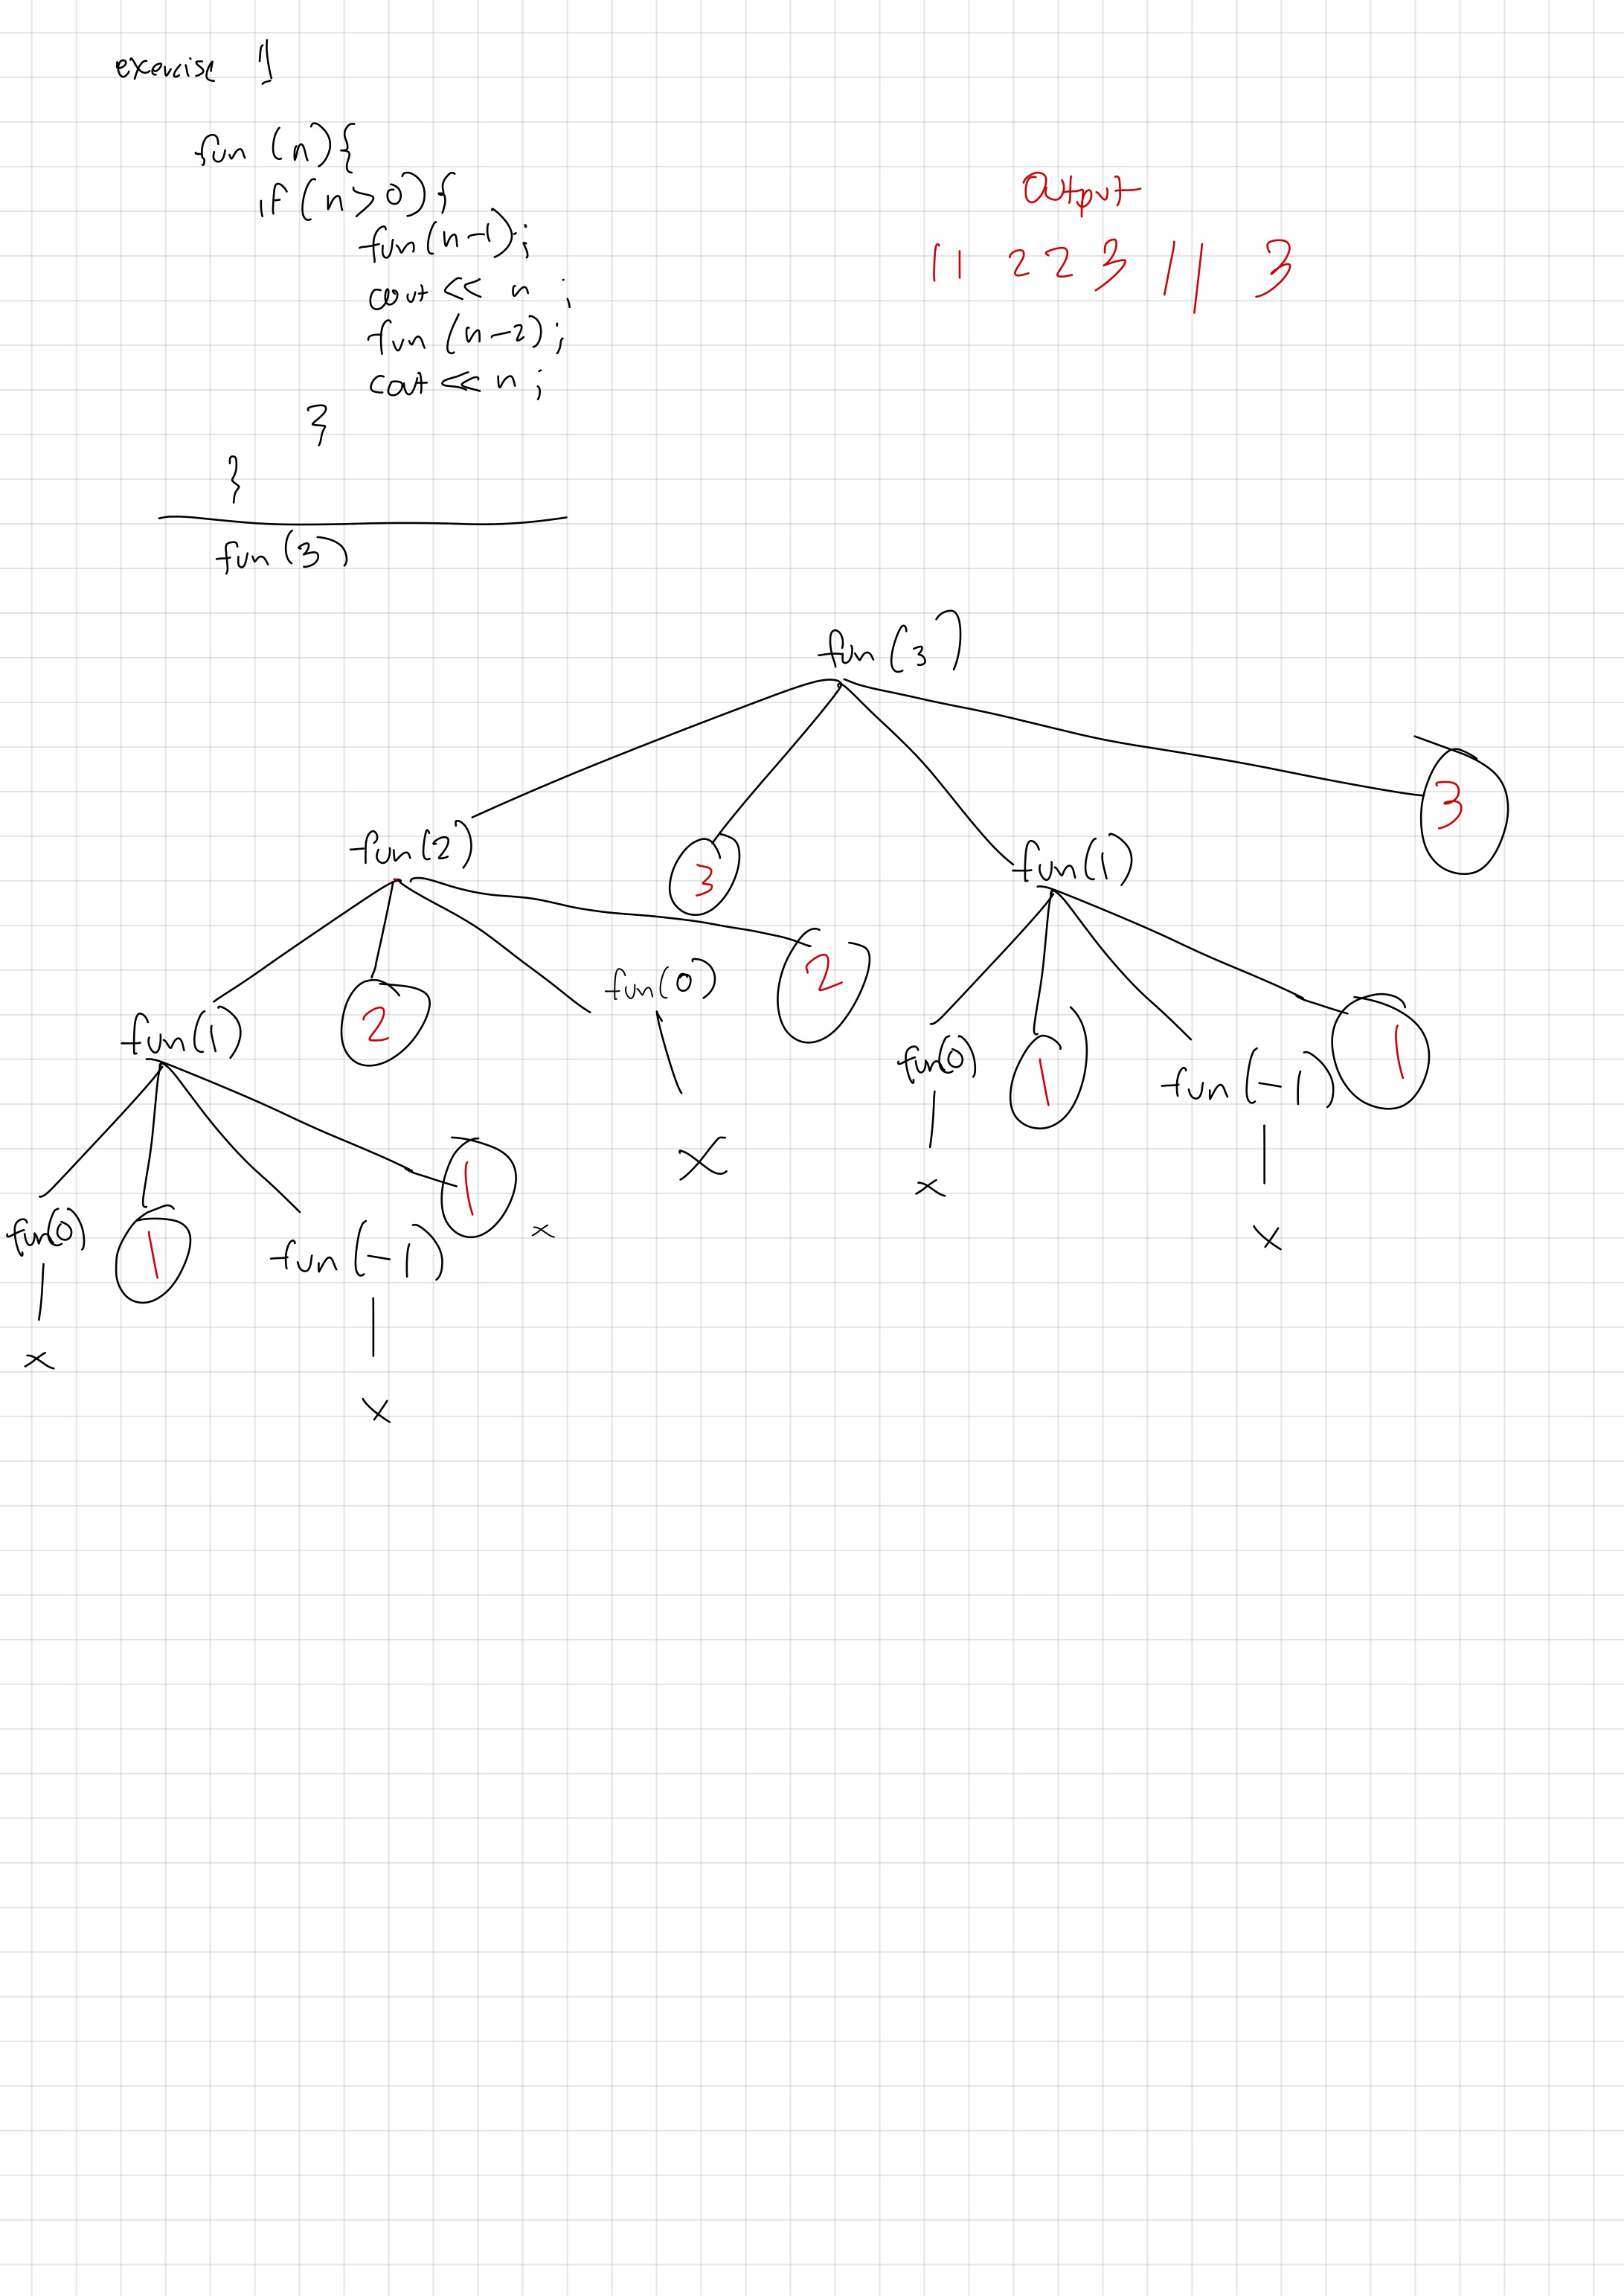 exercise 1
fun (n){
if (n>0){
fun(n-1);
cout << n ;
fun (n-2);
cout << n ;
}
}
fun (3)
Output
11 2 2 3 11 3
fun (3)
3
fun(2)
3
fun(1)
fun(1)
2
fun(0)
2
fun(0)
1
fun (-1)
1
x
x
x
fun(0)
1
fun (-1)
1
x
x
x